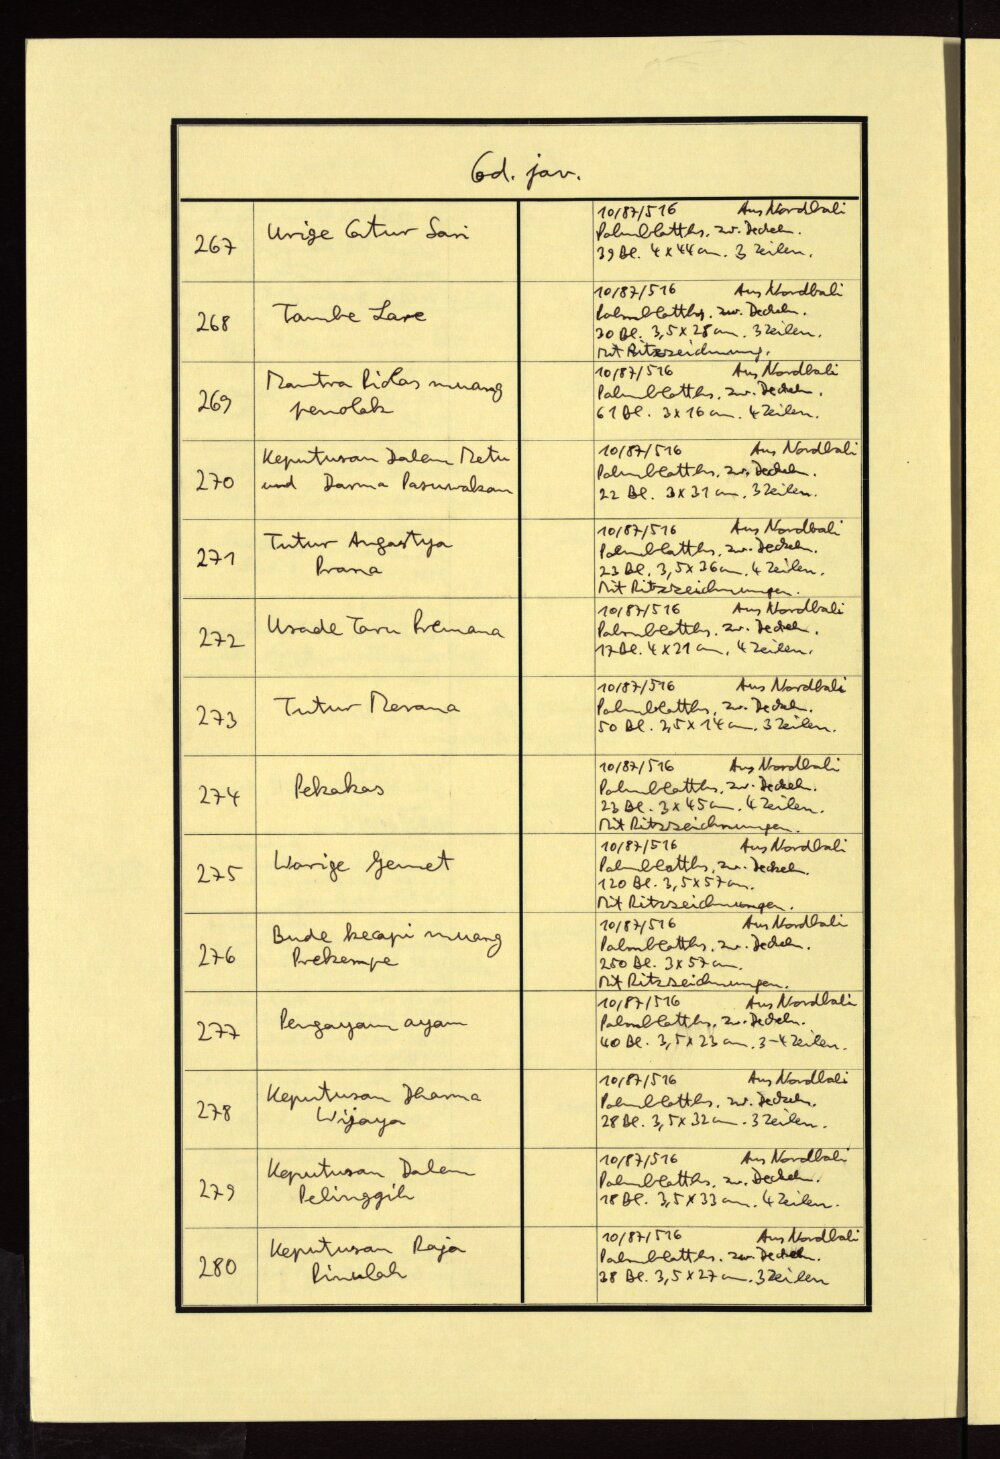 Cod. jav.
267
Urige Catur Sari
10/87/516 Aus Nordbali
Palmblatths. zw. Deckeln.
39 Bl. 4 x 44 cm. 3 Zeilen.
268
Tambe Lare
10/87/516 Aus Nordbali
Palmblatths. zw. Deckeln.
30 Bl. 3,5 x 28 cm. 3 Zeilen.
Mit Ritzzeichnung.
269
Mantra Pidas muang
penolak
10/87/516 Aus Nordbali
Palmblatths. zw. Deckeln.
61 Bl. 3 x 16 cm. 4 Zeilen.
270
Keputusan Dalem Metu
und Darma Pasuwakan
10/87/516 Aus Nordbali
Palmblatths. zw. Deckeln.
22 Bl. 3 x 31 cm. 3 Zeilen.
271
Tutur Angastya
Prana
10/87/516 Aus Nordbali
Palmblatths. zw. Deckeln.
23 Bl. 3,5 x 36 cm. 4 Zeilen.
Mit Ritzzeichnungen.
272
Usade Taru Premana
10/87/516 Aus Nordbali
Palmblatths. zw. Deckeln.
17 Bl. 4 x 21 cm. 4 Zeilen.
273
Tutur Merana
10/87/516 Aus Nordbali
Palmblatths. zw. Deckeln.
50 Bl. 2,5 x 14 cm. 3 Zeilen.
274
Pekakas
10/87/516 Aus Nordbali
Palmblatths. zw. Deckeln.
23 Bl. 3 x 45 cm. 4 Zeilen.
Mit Ritzzeichnungen.
275
Warige Gemet
10/87/516 Aus Nordbali
Palmblatths. zw. Deckeln.
120 Bl. 3,5 x 57 cm.
Mit Ritzzeichnungen.
276
Bude kecapi muang
Prekempe
10/87/516 Aus Nordbali
Palmblatths. zw. Deckeln.
250 Bl. 3 x 57 cm.
Mit Ritzzeichnungen.
277
Pengayam ayam
10/87/516 Aus Nordbali
Palmblatths. zw. Deckeln.
40 Bl. 3,5 x 23 cm. 3-4 Zeilen.
278
Keputusan Dharma
Wijaya
10/87/516 Aus Nordbali
Palmblatths. zw. Deckeln.
28 Bl. 3,5 x 32 cm. 3 Zeilen.
279
Keputusan Dalem
Pelinggih
10/87/516 Aus Nordbali
Palmblatths. zw. Deckeln.
18 Bl. 3,5 x 33 cm. 4 Zeilen.
280
Keputusan Raja
Pinulah
10/87/516 Aus Nordbali
Palmblatths. zw. Deckeln.
38 Bl. 3,5 x 27 cm. 3 Zeilen